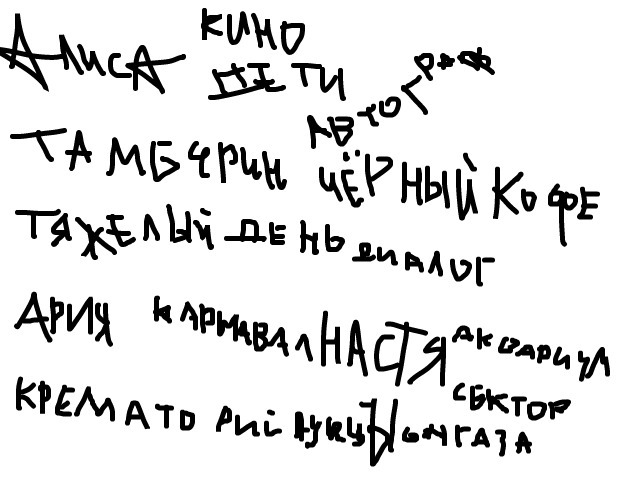 АЛИСА КИНО
АВТОГРАФ
ТАМБУРИН ЧЁРНЫЙ КОФЕ
ТЯЖЕЛЫЙ ДЕНЬ ДИАЛОГ
АРИЯ КАРМАВАЛ НАСТЯ АКВАРИУМ
СЕКТОР
КРЕМАТОРИЙ АУКЦЫОН ГАЗА